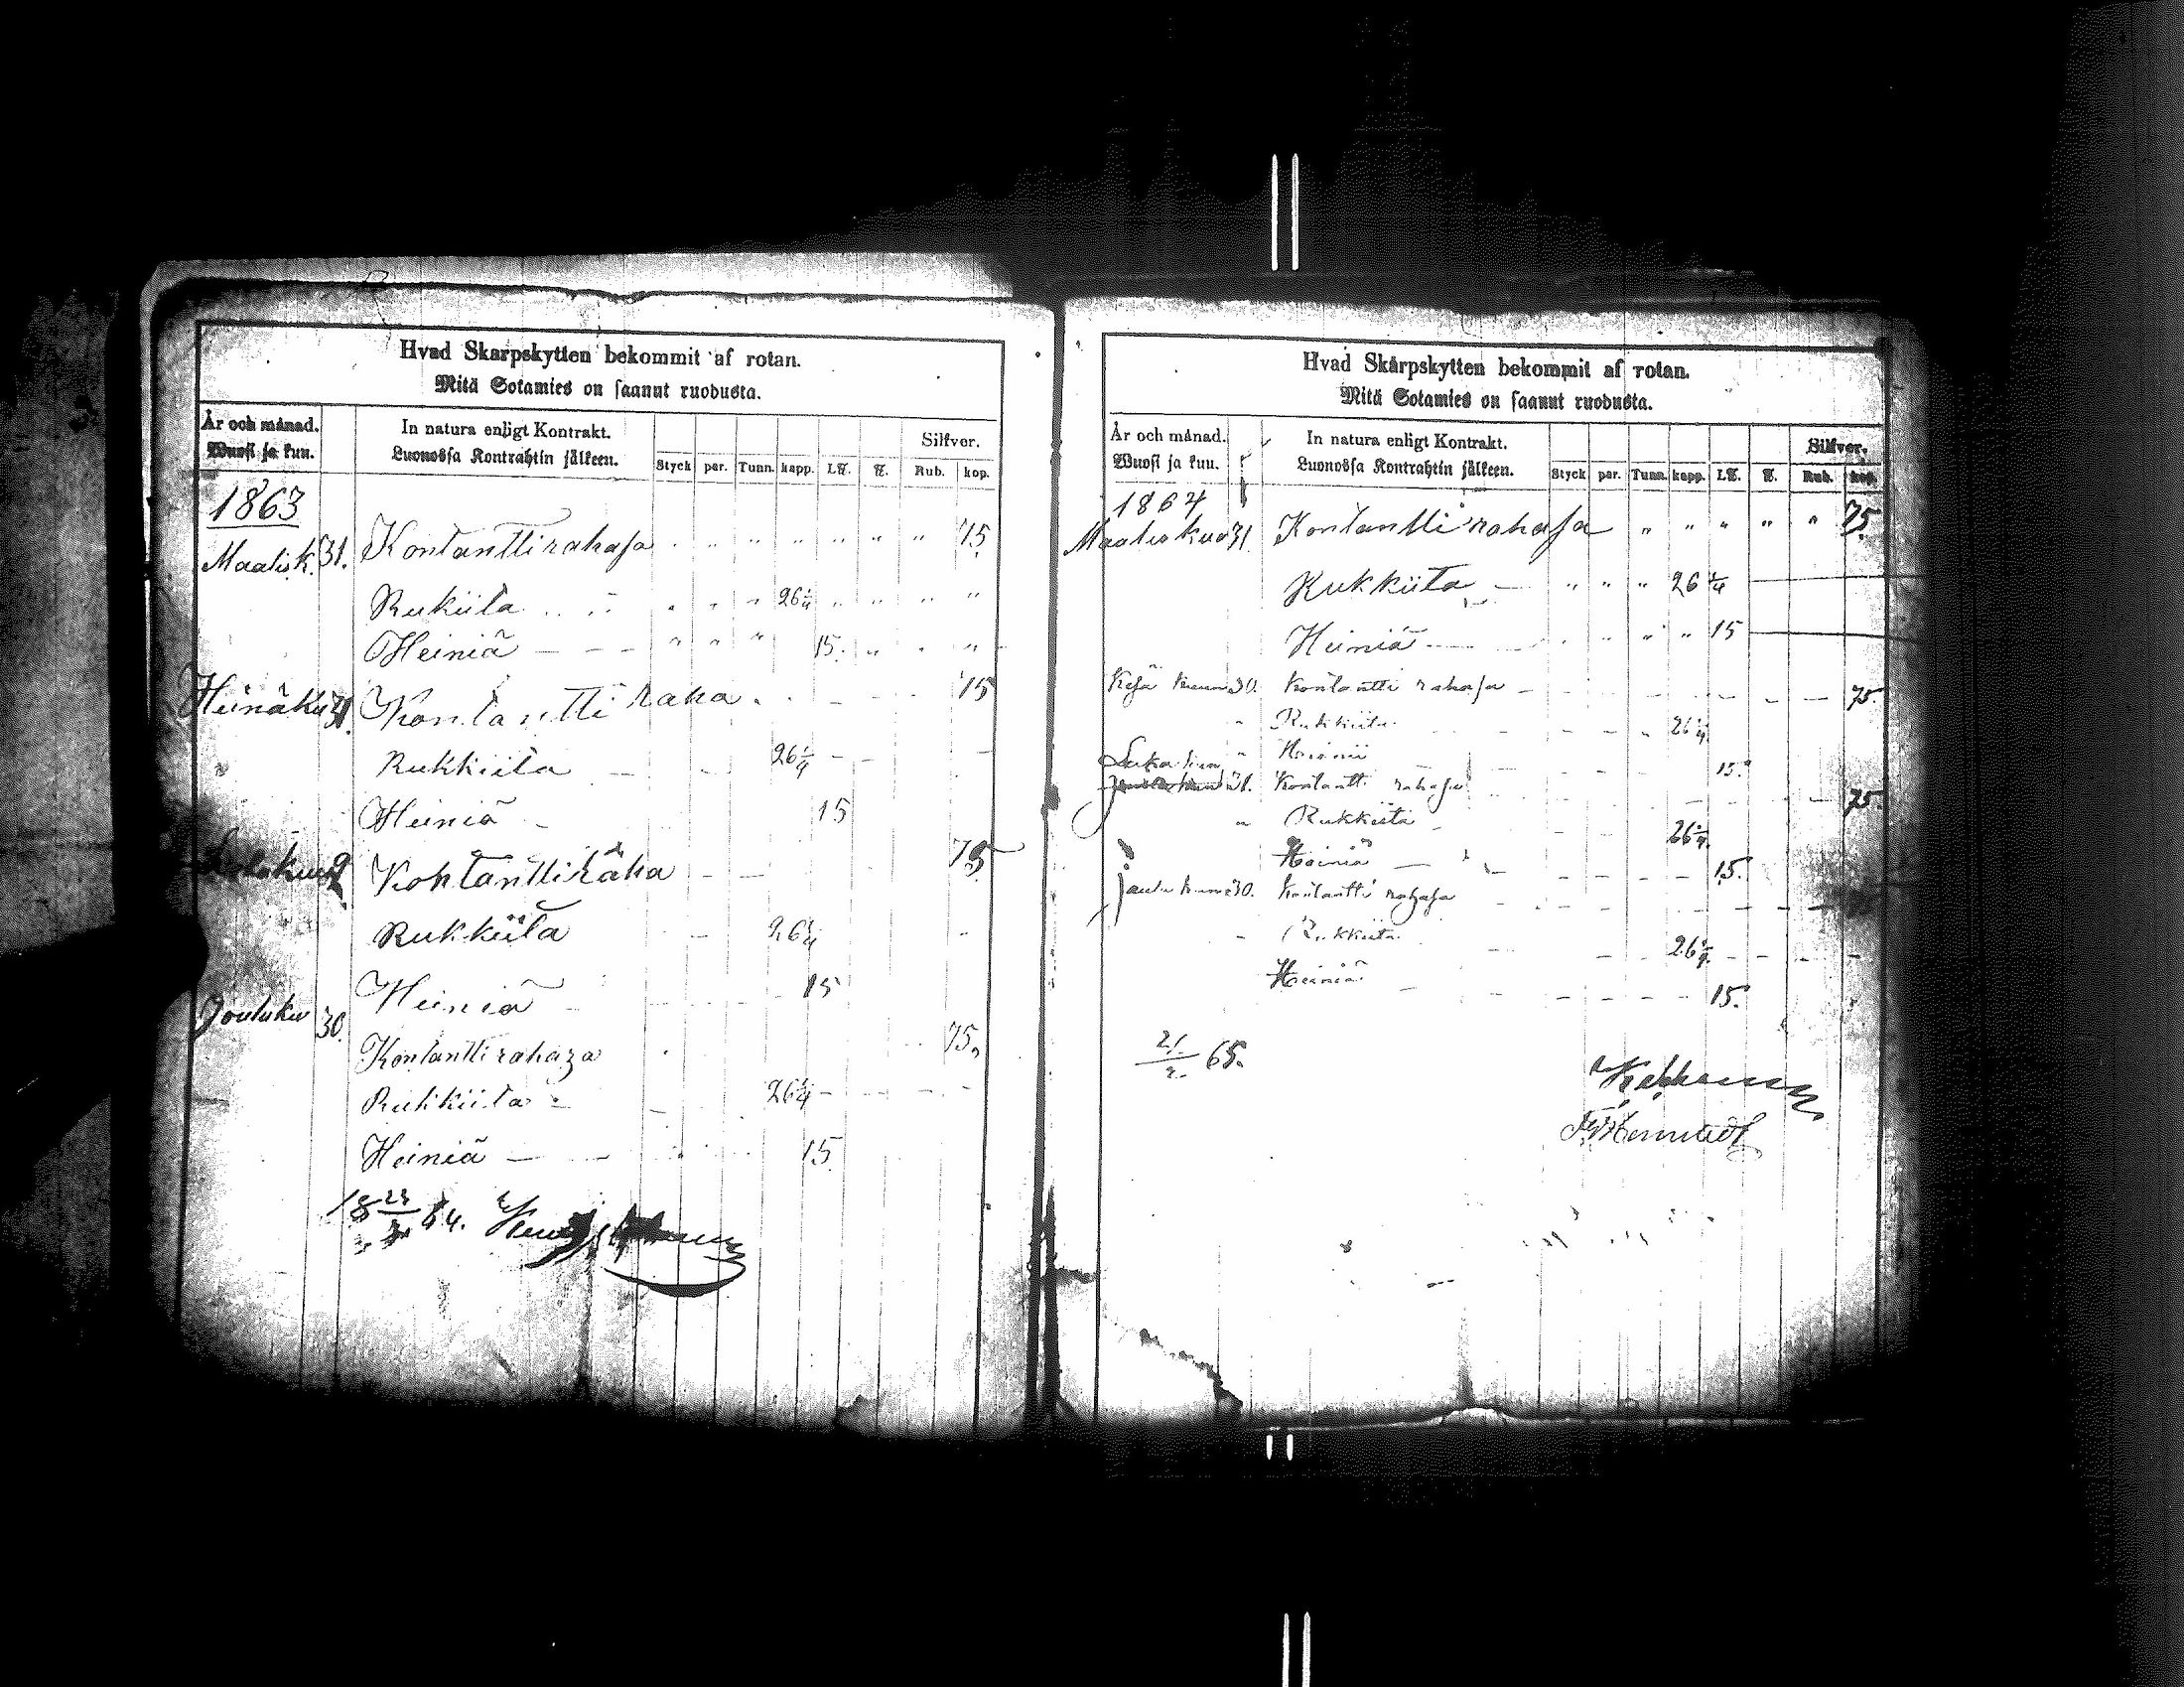 Hvad Skarpskytten bekommit af rotan.
Mitä Sotamies on saanut ruodusta.
År och månad. In natura enligt Kontrakt. Silfver.
Wuosi ja kuu. Luonossa Kontrahtin jälkeen. Styck par. Tunn. kapp. L℔. ℔. Rub. kop.
1863
Maalisk. 31. Kontanttirahasa " " " " " " 75
Rukiita " " " 26 1/4 " " " "
Heiniä — — — " " " 15. " " "
Heinäku 31. Kontantti raha 75
Rukkiita — 26 1/4 — —
Heiniä 15
Kohtanttiraha — — 75
Rukkiita — 26 1/4
Heiniä 15
Jouluku 30. Kontanttirahaza 75.
Rukkiita 26 1/4 — —
Heiniä — — 15
64.
Hvad Skarpskytten bekommit af rotan.
Mitä Sotamies on saanut ruodusta.
År och månad. In natura enligt Kontrakt. Silfver.
Wuosi ja kuu. Luonossa Kontrahtin jälkeen. Styck par. Tunn. kapp. L℔. ℔. Rub. kop.
1864
Maaliskuu 31. Kontantti rahasa " " " " " 75.
Rukkiita — " " " 26 1/4
Heiniä " " " " 15
Kesä kuun 30. Kontantti rahasa — 75.
" Rukkiita 26 1/4
" Heiniä 15.
Luka kuun 31. Kontantti rahasa 75.
" Rukkiita 26 1/4
Heiniä — 15.
joulu kuun 30. Kontantti rahasa
" Rukkiita 26 1/4
Heiniä 15.
21/2. 65.